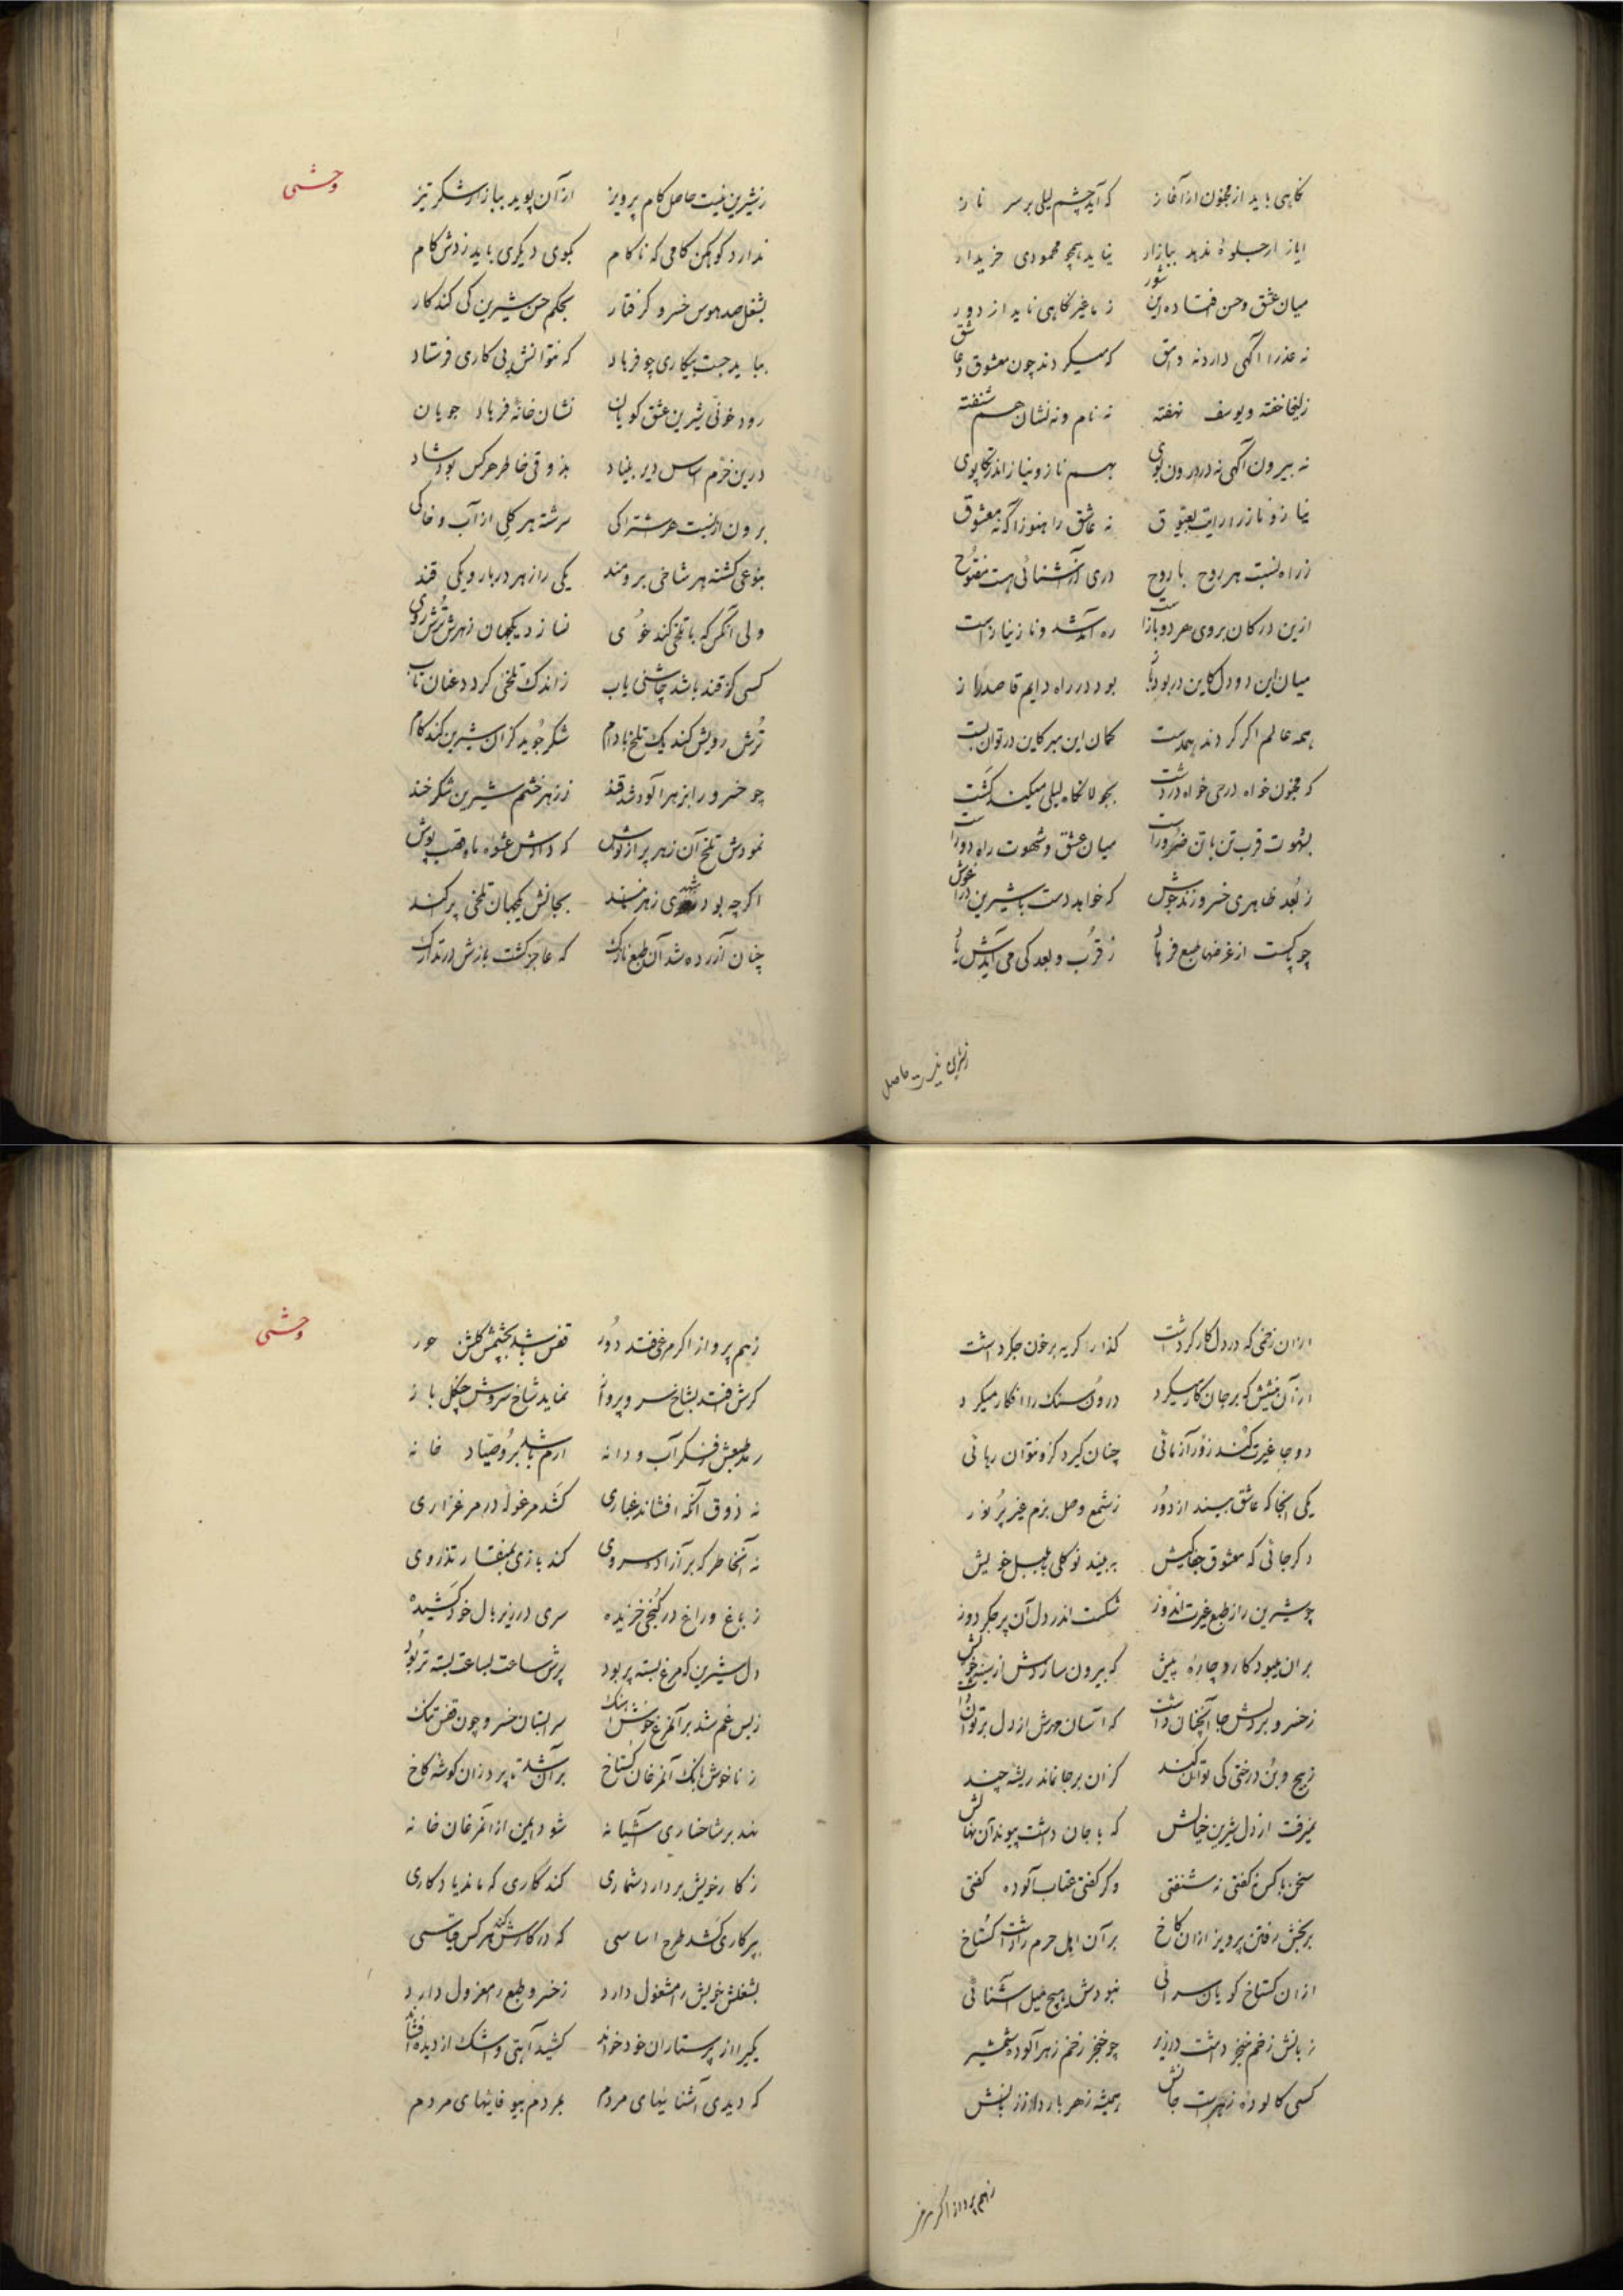 نگاهی باید از مجنون در آغاز که آید چشم لیلی بر سر ناز
ایاز ار جلوه ندهد ببازار نیاید همچو محمودی خریدار
میان عشق و حسن افتاده این شور ز ما غیر نگاهی ناید از دور
نه عذرا آگهی دارد نه وامق که میگردند چون معشوق و عاشق
زلیخا خفته و یوسف نهفته نه نام و نه نشان هم شنفته
نه بیرون آگهی نه در درون بوی بهم ناز و نیاز اندر تکاپوی
نیاز و ناز را رایت بعیوق نه عاشق را هنوز آگه نه معشوق
ز راه نسبت هر روح با روح دری از آشنائی هست مفتوح
ازین در کان بروی هر دو بازاست ره آمد شد و ناز و نیازاست
میان این دو دل کاین در بود باز بود در راه دایم قاصد راز
همه عالم اگر گردند همدست گمان این مبر کاین در توان بست
که مجنون خواه در حی خواه در دشت بجولانگاه لیلی میکند گشت
بشهوت قرب تن با تن ضروراست میان عشق و شهوت راه دوراست
ز بعد ظاهری خسرو زند جوش که خواهد دست با شیرین در آغوش
چو پاکست از غرضها طبع فرهاد ز قرب و بعد کی می آیدش یاد
ز شیرین نیست حاصل
وحشی
ز شیرین نیست حاصل کام پرویز از آن پوید ببازار شکر تیز
ندارد کوهکن کامی که ناکام بکوی دیگری باید زدش گام
بشغل صد هوس خسرو گرفتار بحکم حسن شیرین کی کند کار
بباید جست بیکاری چو فرهاد که بتوانش پی کاری فرستاد
رود خوئی شیرین عشق گویان نشان خانهٔ فرهاد جویان
درین خرم اساس دیر بنیاد بذوقی خاطر هر کس بود شاد
برون از نسبت هر اشتراکی سرشته هر گلی از آب و خاکی
بنوعی گشته هر شاخی برومند یکی را زهر در بار و یکی قند
ولی آنکس که با تلخی کند خوی نسازد یکجهان زهرش ترش روی
کسی کز قند باشد چاشنی یاب ز اندک تلخئی گردد عنان تاب
ترش رویش کند یک تلخ بادام شکر جوید کز آن شیرین کند کام
چو خسرو را بزهر آلوده شد قند ز زهر خشم شیرین شکر خند
نمودش تلخ آن زهر پر از نوش که دادش عشوه ماه قصب پوش
اگرچه بود شهدی زهر مانند بجانش یکجهان تلخی پراکند
چنان آزرده شد آن طبع نازک که عاجز گشت نازش در تدارک
از آن زخمی که در دل کارگر داشت گذار گریه بر خون جگر داشت
از آن نیشش که بر جان کار میکرد درون سنگ را افکار میکرد
دو جا غیرت کند زور آزمائی چنان گیرد کزو نتوان رهائی
یکی آنجا که عاشق بیند از دور ز شمع وصل بزم غیر پر نور
دگر جائی که معشوق جفا کیش ببیند نو گلی با بلبل خویش
چو شیرین را ز طبع غیرت اندوز شکست اندر دل آن پر جگر دوز
بر آن میبود کارد چارهٔ پیش که بیرون سازدش از سینه خویش
ز خسرو بر دلش جا آنچنان داشت که آسان مهرش از دل بر توان داشت
ز بیخ و بن درختی کی توان کند کز آن بر جا نماند ریشه چند
نمیرفت از دل شیرین خیالش که با جان داشت پیوند آن نهالش
سخن با کس نگفتی نه شنفتی وگر گفتی عتاب آلوده گفتی
برنجش رفتن پرویز از آن کاخ بر آن اهل حرم را داشت گستاخ
از آن گستاخ گویان سرائی نبودش هیچ میل آشنائی
زبانش زخم خنجر داشت در زیر چو خنجر زخم زهر آلوده شمشیر
کسی کالوده زهر است جانش همیشه زهر بارد از زبانش
ز هم پرواز اگر مرغی
وحشی
ز هم پرواز اگر مرغی فتد دور قفس باشد بچشمش گلشن حور
گرش افتد بشاخ سرو پرواز نماید شاخ سروش چنگل باز
رمد طبعش ز فکر آب و دانه ارم باشد برو صیاد خانه
نه ذوق آنکه افشاند غباری کشد مرغوله در مرغزاری
نه آنخاطر که بر آزاد سروی کند بازی بمنقار تذروی
ز باغ و راغ در کنجی خزیده سری در زیر بال خود کشیده
دل شیرین که مرغ بسته پر بود پرش ساعت بساعت بسته تر بود
ز بس غم شد بر آنمرغ خوش آهنگ سرابستان خسرو چون قفس تنگ
ز ناخوش بانگ آنمرغان گستاخ بر آن شد تا پرد زان گوشه کاخ
نهد بر شاخساری آشیانه شود ایمن از آنمرغان خانه
ز کار خویش بردارد شماری کند کاری که ماند یادگاری
بپرکاری کشد طرح اساسی که در کارش کند هر کس قیاسی
بشغلش خویش را مشغول دارد ز خسرو طبع را معزول دارد
یکی را از پرستاران خود خواند کشید آهی و اشک از دیده افشاند
که دیدی آشنائیهای مردم بمردم بیوفائیهای مردم